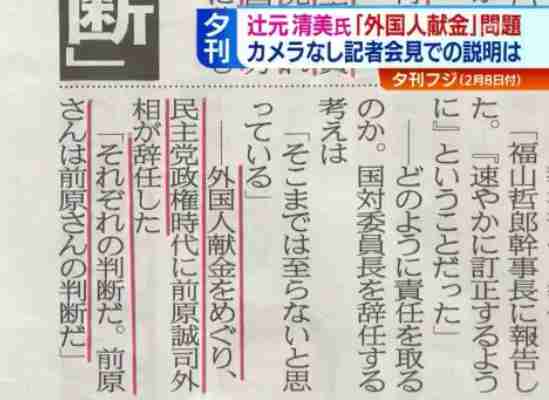 夕刊
辻元清美氏「外国人献金」問題
カメラなし記者会見での説明は
夕刊フジ(2月8日付)
断」
「福山哲郎幹事長に報告し
た。『速やかに訂正するよう
に』ということだった」
――どのように責任を取る
のか。国対委員長を辞任する
考えは
「そこまでは至らないと思
っている」
――外国人献金をめぐり、
民主党政権時代に前原誠司外
相が辞任した
「それぞれの判断だ。前原
さんは前原さんの判断だ」